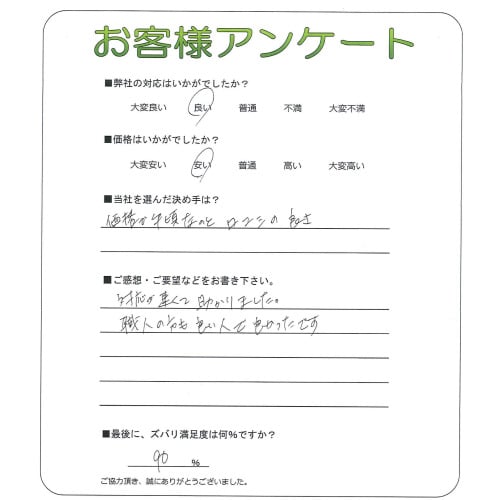 お客様アンケート
■弊社の対応はいかがでしたか？
大変良い 良い 普通 不満 大変不満
■価格はいかがでしたか？
大変安い 安い 普通 高い 大変高い
■当社を選んだ決め手は？
価格が手頃なのと 口コミの良さ
■ご感想・ご要望などをお書き下さい。
対応が早くて助かりました。
職人の方も良い人で良かったです
■最後に、ズバリ満足度は何％ですか？
90 ％
ご協力頂き、誠にありがとうございました。